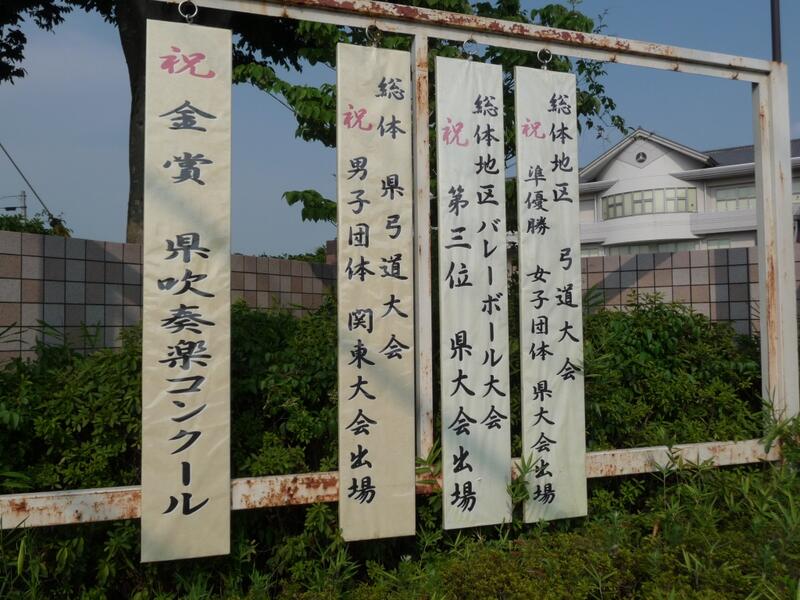 総体地区 弓道大会
祝 準優勝 女子団体 県大会出場
総体地区バレーボール大会
祝 第三位 県大会出場
総体 県弓道大会
祝 男子団体 関東大会出場
祝 金賞 県吹奏楽コンクール